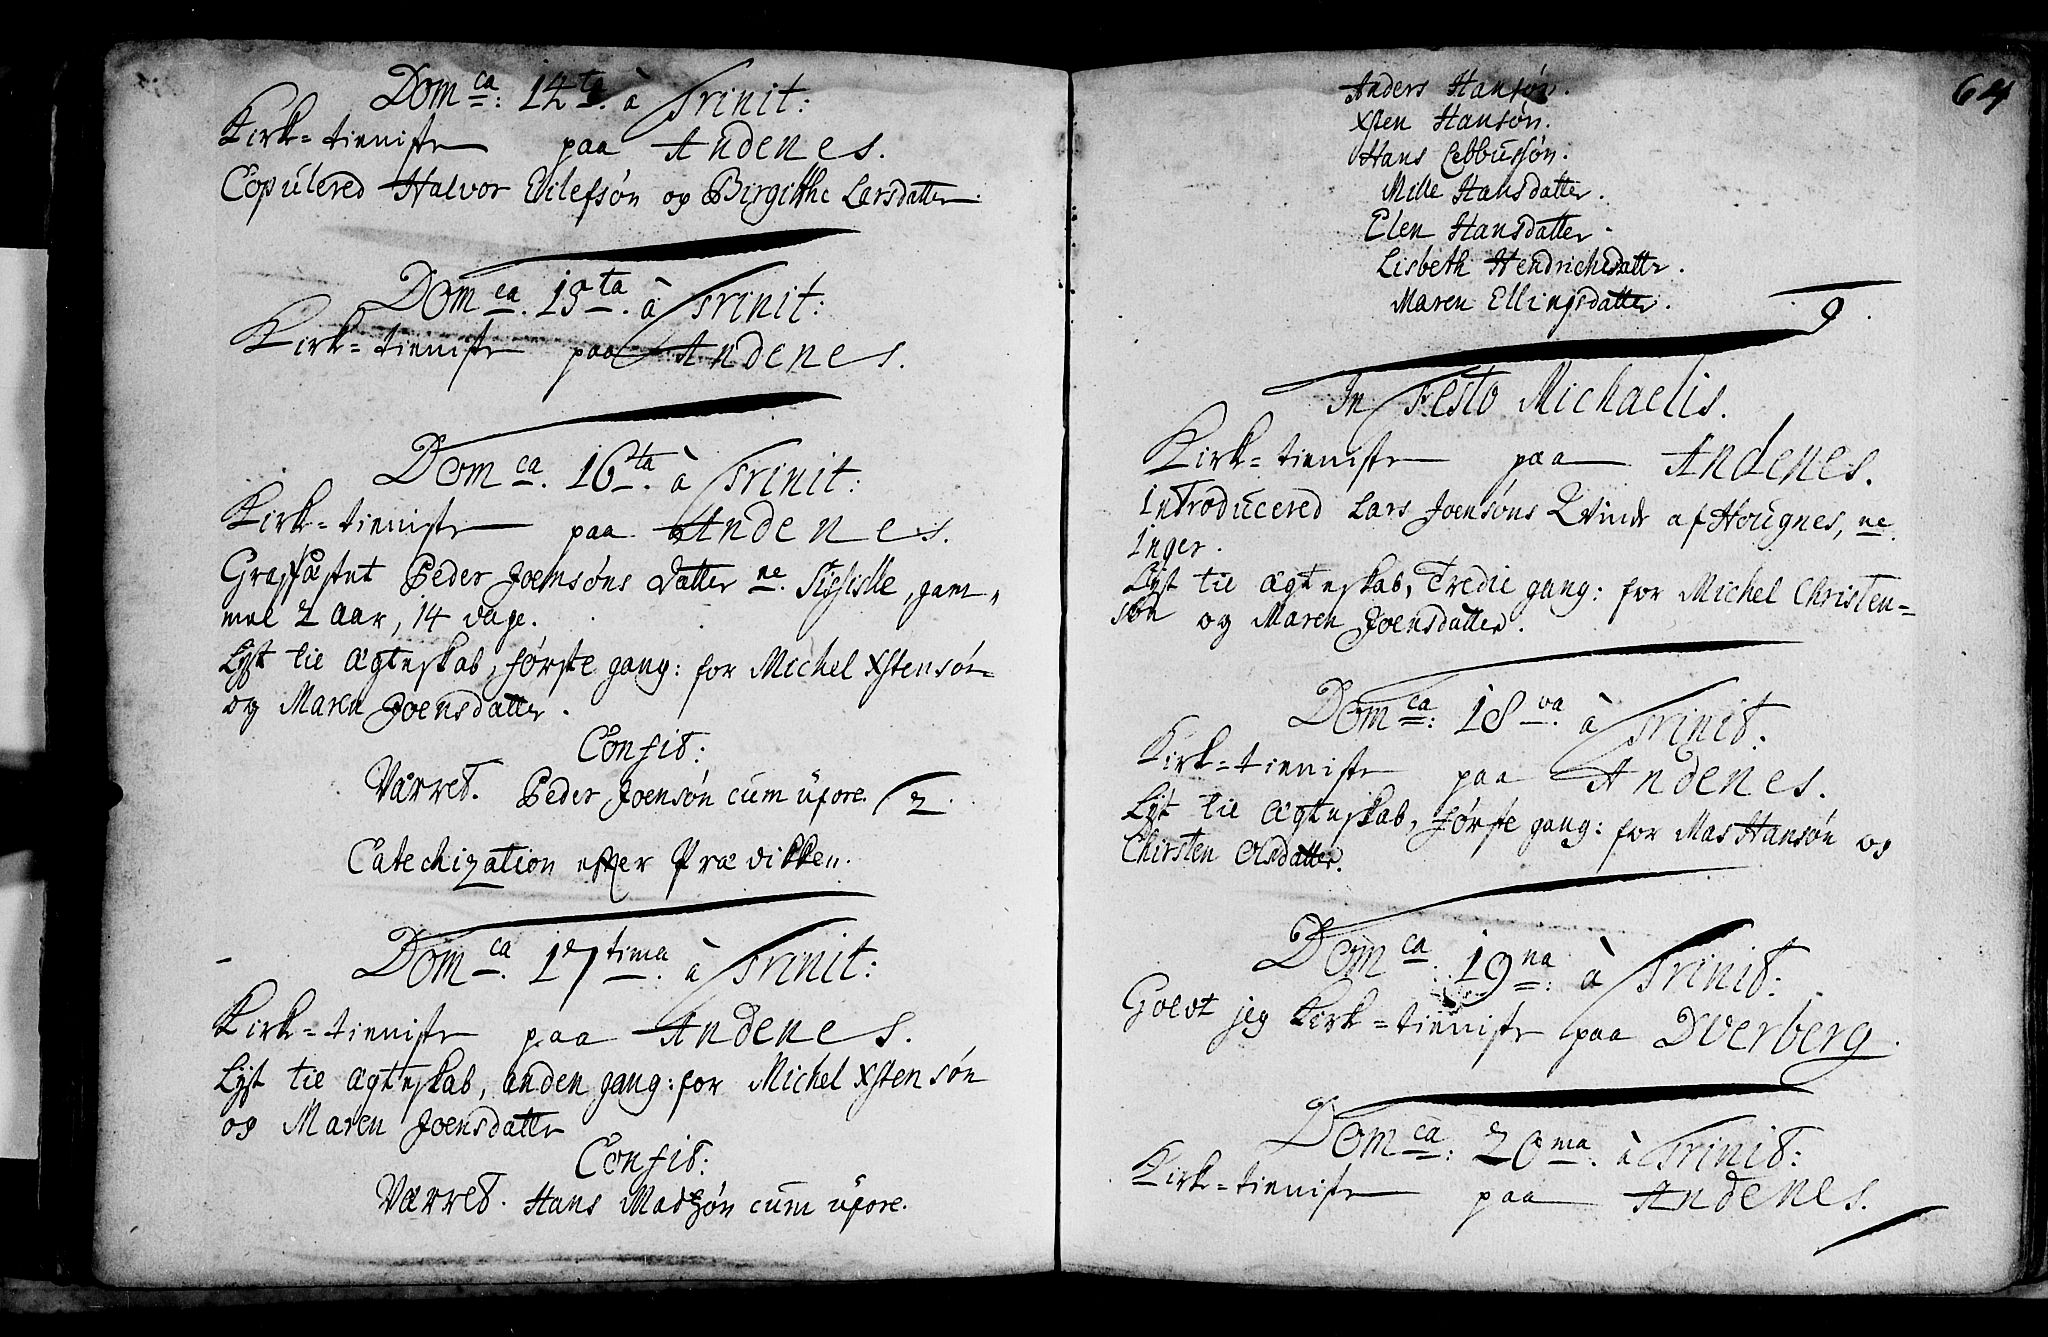 Dom ca: 14 ta. à Trinit:
Kirk-tieniste paa Andenes.
Copulered Halvor Eilefsøn og Birgithe Larsdatter.
Dom ca. 15 ta. à Trinit:
Kirk-tieniste paa Andenes.
Dom ca. 16 ta. à Trinit:
Kirk-tieniste paa Andenes.
Graffæstet Peder Joensøns Datter ne. , gam-
mel 2 aar, 14 dage.
Lyst til Ægteskab, første gang: for Michel Xstensøn
og Maren Joensdatter.
Confit:
Værret. Peder Joensøn cum uxore. 2.
Catechization efter Prædikken.
Dom ca. 17 tima. à Trinit:
Kirk-tieniste paa Andenes.
Lyst til Ægteskab, anden gang: for Michel Xstensøn
og Maren Joensdatter
Confit:
Værret. Hans Madssøn cum uxore.
64
Anders Hansøn.
Xsten Hansøn.
Hans Ebbussøn.
Mille Hansdatter.
Elen Hansdatter.
Lisbeth Hendrichsdatter.
Maren Ellingsdatter.
9.
In Festo Michaelis.
Kirk-tieniste paa Andenes.
Introducered Lars Joensøns Qvinde af Hougnes, ne.
Inger.
Lyst til Ægteskab, Tredie gang: for Michel Christen-
søn og Maren Joensdatter.
Dom ca: 18 va. à Trinit:
Kirk-tieniste paa Andenes.
Lyst til Ægteskab, første gang: for Mas Hansøn og
Chirsten Olsdatter.
Dom ca. 19 na: à Trinit:
Holdt jeg Kirk-tieniste paa Dverberg.
Dom ca: 20 ma: à Trinit:
Kirk-tieniste paa Andenes.